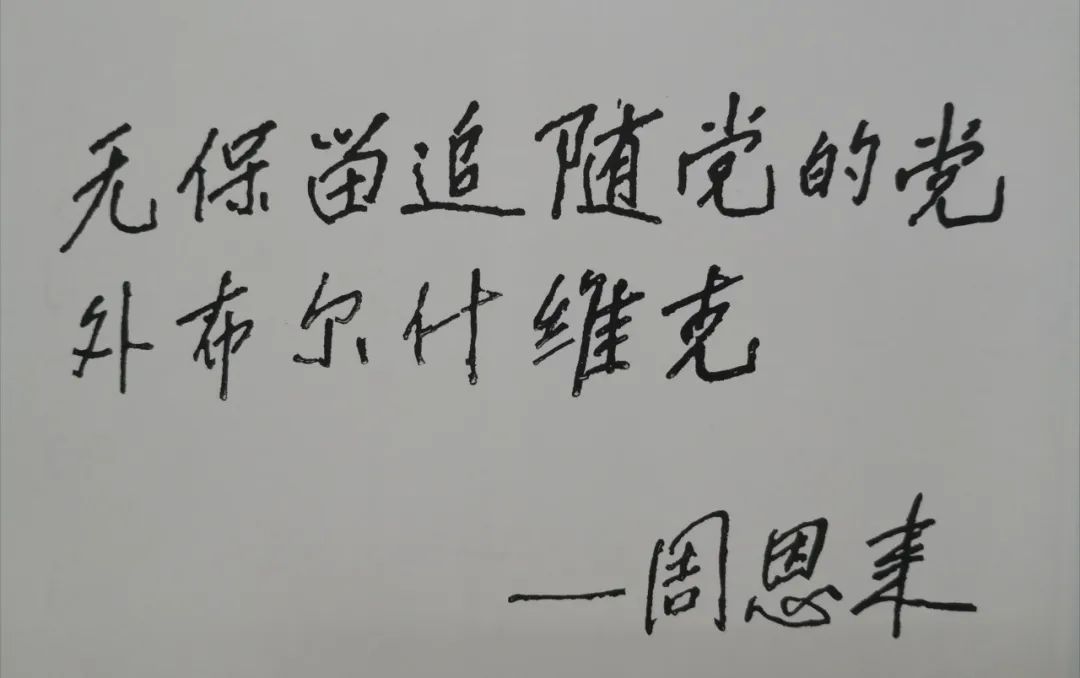 无保留追随党的党
外布尔什维克
—周恩来